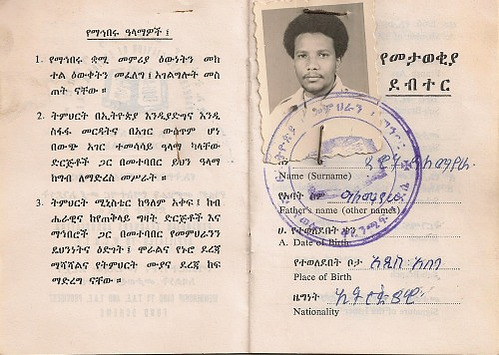 የማኅበሩ ዓላማዎች ፤
1. የማኅበሩ ቋሚ መምሪያ ዕውነትን መከ
ተል ዕውቀትን መፈለግ ፤ አገልግሎት መስ
ጠት ናቸው ።
2. ትምህርት በኢትዮጵያ እንዲያድግና እንዲ
ስፋፋ መርዳትና በአገር ውስጥም ሆነ
በውጭ አገር ተመሳሳይ ዓላማ ካላቸው
ድርጅቶች ጋር በመተባበር ይህን ዓላማ
ከግብ ለማድረስ መሥራት ።
3. ትምህርት ሚኒስቴር ከዓለም አቀፍ ፤ ከብ
ሔራዊና ከየጠቅላይ ግዛት ድርጅቶች እና
ማኅበሮች ጋር በመተባበር የመምህራንን
ደህንነትና ዕድገት ፤ ሞራልና የኑሮ ደረጃ
ማሻሻልና የትምህርት ሙያና ደረጃ ከፍ
ማድረግ ናቸው ።
የመታወቂያ
ደብተር
Name (Surname)
የአባት ስም
Father's name (other names)
ሀ. የተወለደበት ቀን
A. Date of Birth
የተወለደበት ቦታ አዲስ አበባ
Place of Birth
ዜግነት ኢትዮጵያዊ
Nationality